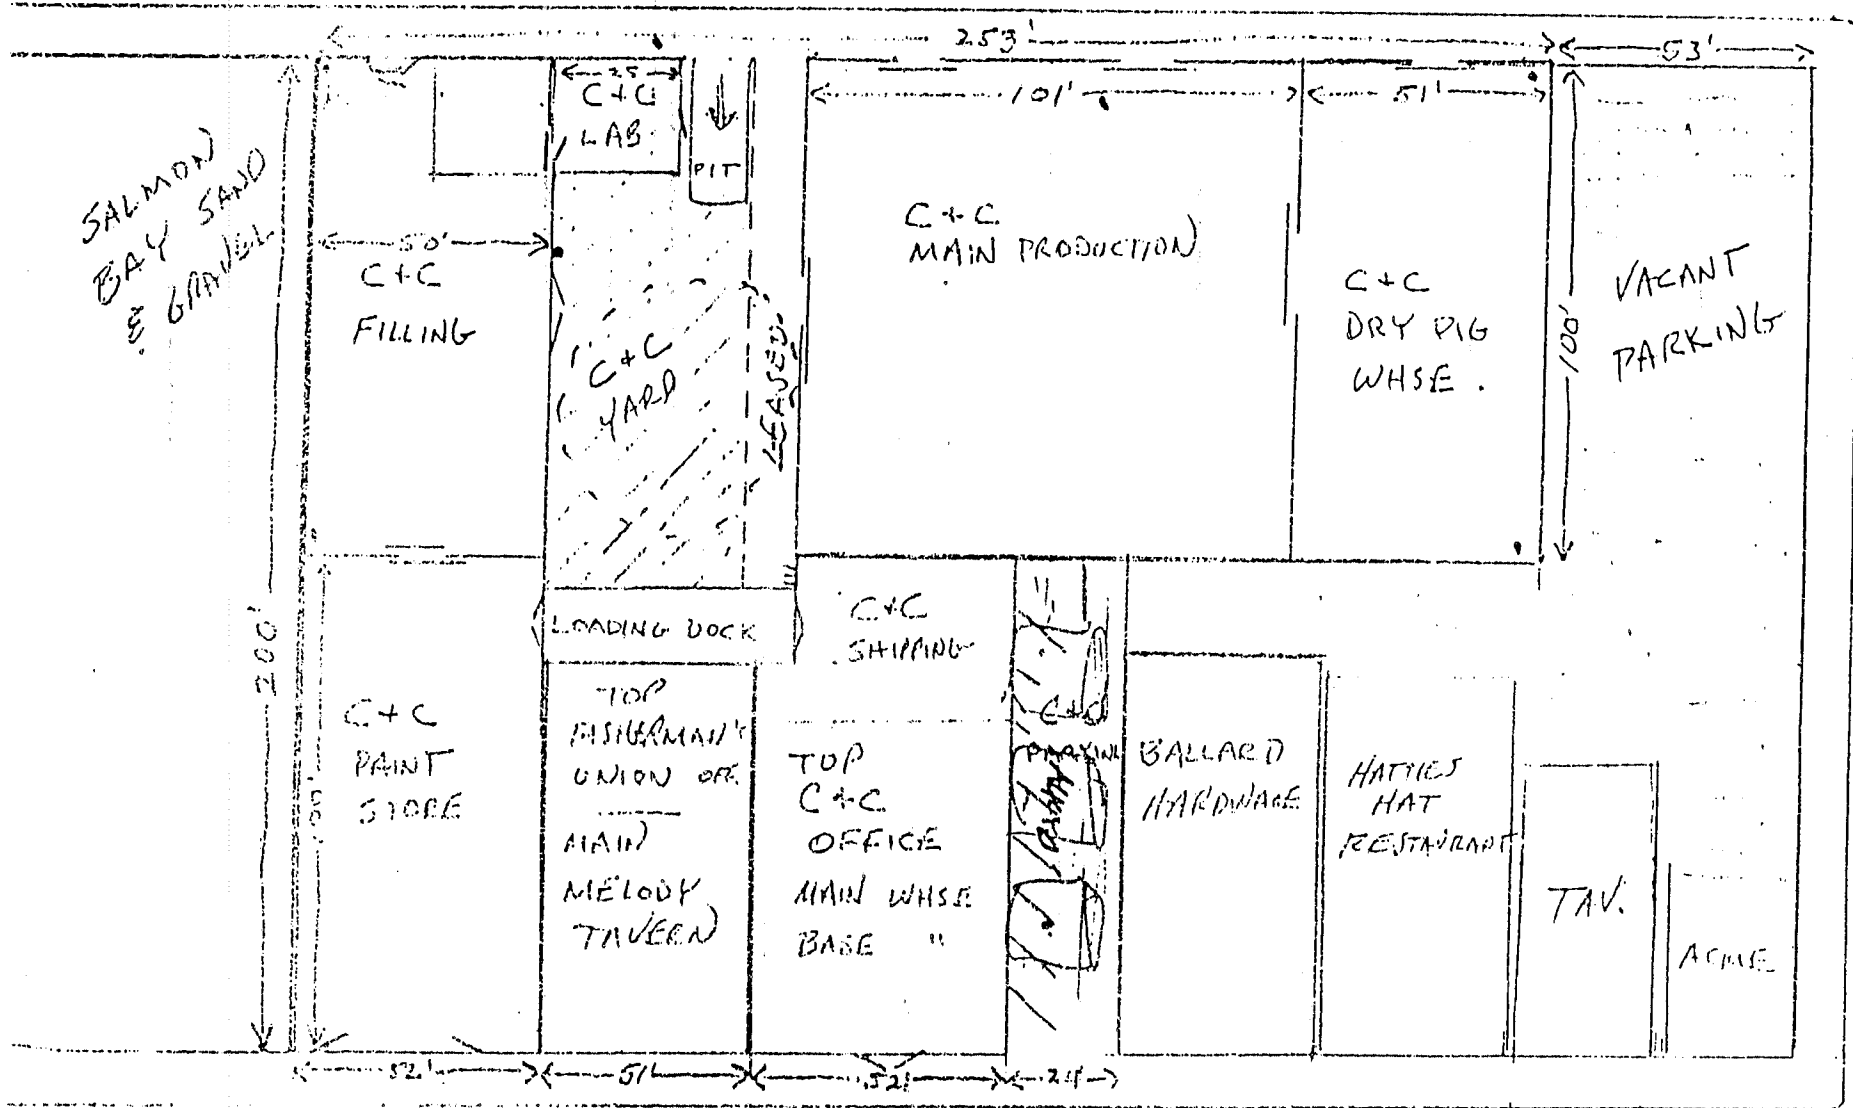 253'
53'
25
C+C
LAB
PIT
101'
51'
SALMON
BAY SAND
& GRAVEL
50'
C+C
FILLING
C+C
YARD
LEASED
C+C
MAIN PRODUCTION
C+C
DRY PIG
WHSE.
100'
VACANT
PARKING
200'
100'
LOADING DOCK
C+C
SHIPPING
C+C
PAINT
STORE
TOP
FISHERMAN'S
UNION OFF.
MAIN
MELODY
TAVERN
TOP
C+C
OFFICE
MAIN WHSE
BASE "
C+C
PARKING
BALLARD
HARDWARE
HATTIES
HAT
RESTAURANT
TAV.
ACME
52'
51'
52'
24'